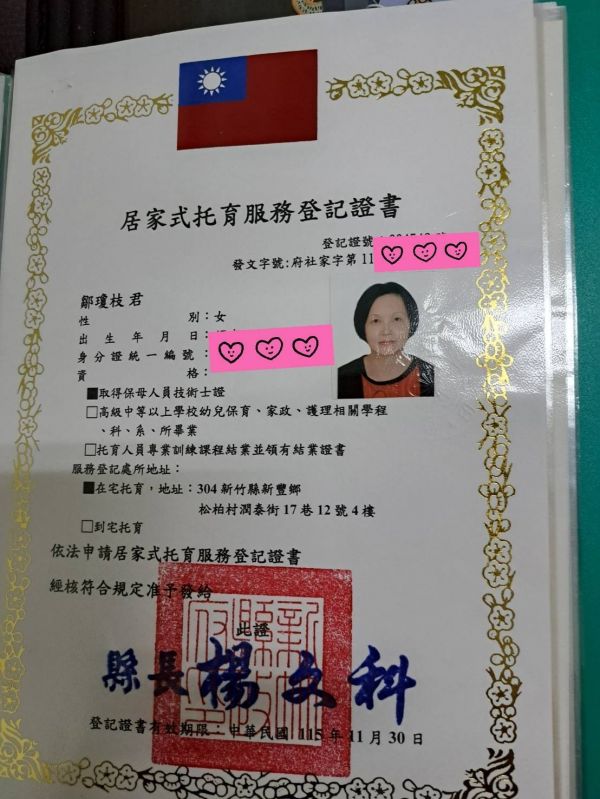 居家式托育服務登記證書
登記證號:
發文字號:府社家字第11
鄒瓊枝 君
性別:女
出生年月日:
身分證統一編號:
資格:
■取得保母人員技術士證
□高級中等以上學校幼兒保育、家政、護理相關學程
、科、系、所畢業
□托育人員專業訓練課程結業並領有結業證書
服務登記處所地址:
■在宅托育,地址:304新竹縣新豐鄉
松柏村潤泰街17巷12號4樓
□到宅托育
依法申請居家式托育服務登記證書
經核符合規定准予發給
此證
縣長楊文科
登記證書有效期限:中華民國 115年11月30日